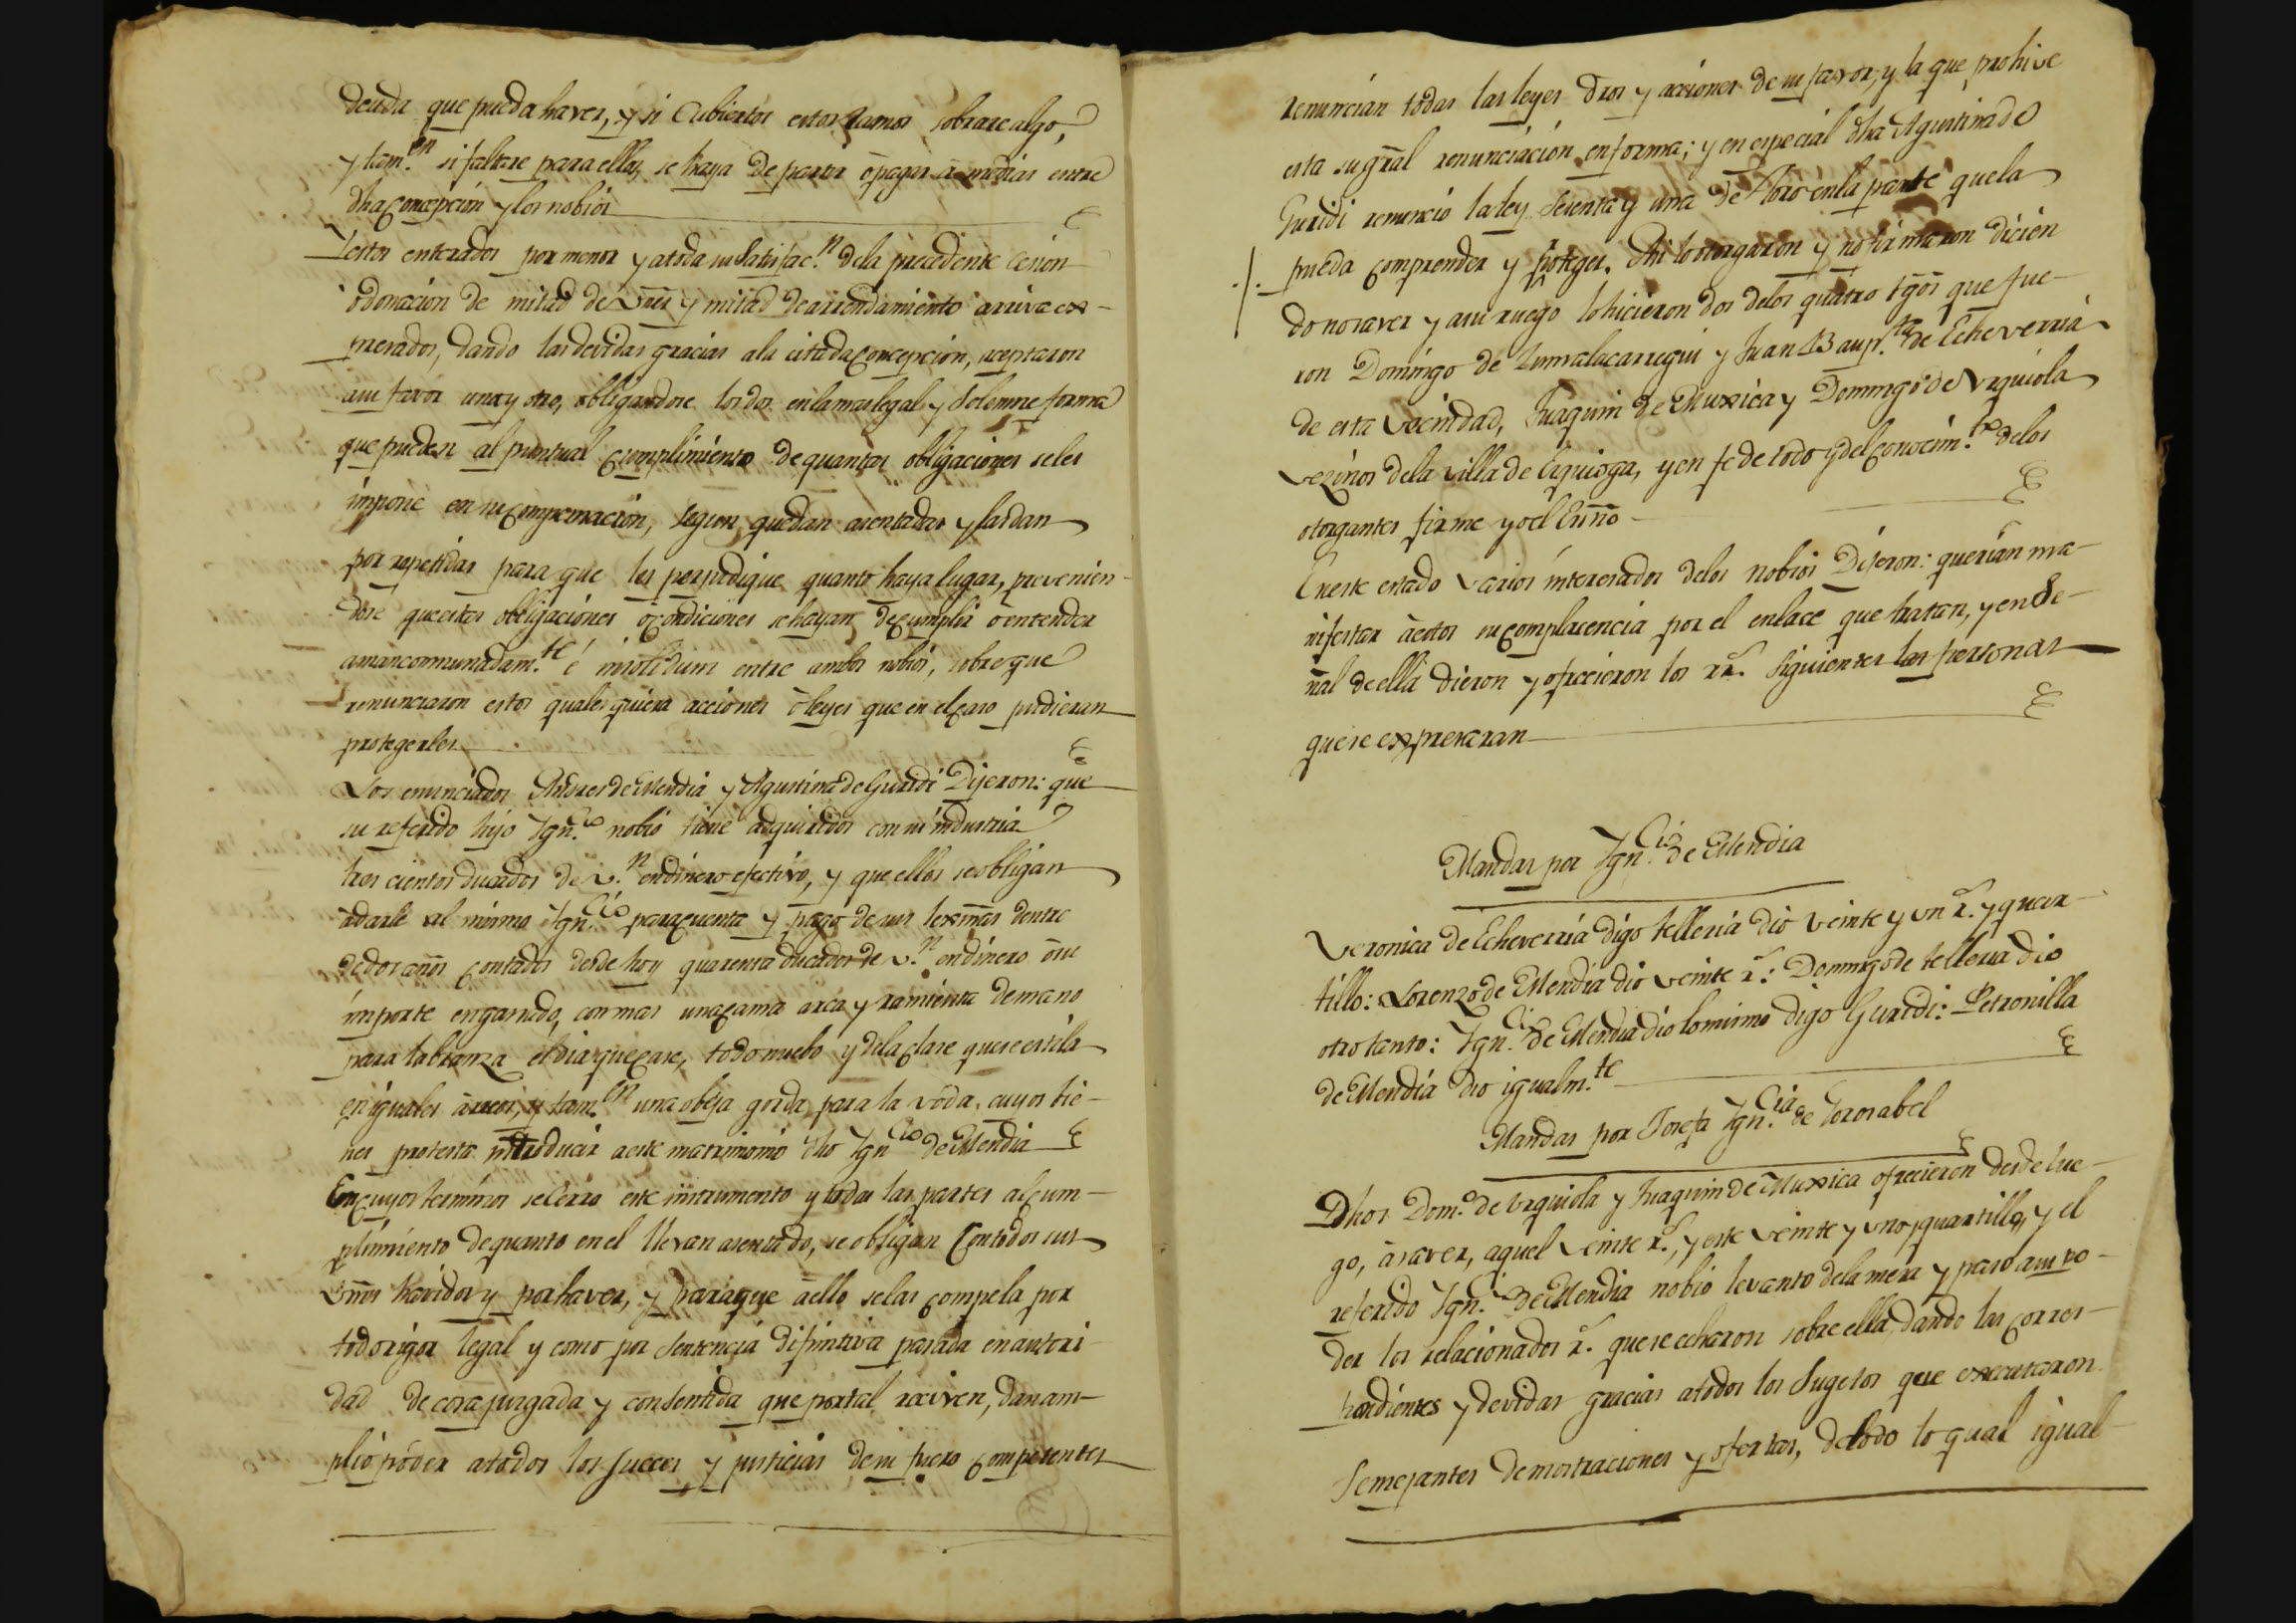 deuda que pueda haver, y si Cubiertos estos ramos sobrare algo,
y tam.en si faltare para ellos, se haya de partir ò pagar à medias entre
dha Concepcion y los nobios
Y estos enterados por menor y a toda su satisfac.n dela precedente Cesion
ò donacion de mitad de vnes y mitad de arrendamiento arriva ex-
presados, dando las devidas gracias ala citada Concepcion, aceptaron
a su favor uno y otro, obligandose los dos en la mas legal y solemne forma
que pueden al puntual cumplimiento de quantas obligaciones seles
impone en su compensacion, segun quedan asentadas y las dan
por repetidas para que les perjudique quanto haya lugar, previnien-
dose que estas obligaciones ò condiciones se hayan de cumplir ò entender
amancomunadam.te é insolidum entre ambos nobios, sobre que
renunciaron estos qualesquiera acciones ò leyes que en el caso pudieran
protegerles
Los enunciados Andres de Mendia y Agustina de Guridi Dijeron: que
su referido hijo Ygn.cio nobio tiene adquiridos con su industria
tres cientos ducados de v.n en dinero efectivo, y que ellos se obligan
à darle al mismo Ygn.cio para cuenta y pago de sus lexmas dentro
de dos años contados desde hoy quarenta ducados de v.n en dinero ò su
importe en ganado, con mas una cama arca y ramienta de mano
para labranza el dia que case, todo nuebo y dela clase que se estila
en iguales àrreos, y tam.en una obeja gorda para la voda, cuyos vie-
nes protesta introducir a este matrimonio dho Ygn.cio de Mendia
En cuyos terminos se Cerro este instrumento y todas las partes al cum-
plimiento de quanto en el llevan asentado, se obligan Con todos sus
vnes havidos y por haver, y para que à ello se las compela por
todo rigor legal y como por sentencia difinitiva pasada en autori-
dad de cosa juzgada y consentida que por tal reciven, dan am-
plio poder a todos los Jueces y justicias de su fuero competentes
renuncian todas las leyes dros y acciones de su favor, y la que prohive
esta su gral renunciacion en forma; y en especial dha Agustina de
Guridi renuncio la ley sesenta y una de Toro en la parte que la
pueda comprender y proteger. Asi lo otorgaron y no firmaron dicien
do no saver y a su ruego lo hicieron dos delos quatro tgos que fue-
ron Domingo de Zumalacarregui y Juan Baup.ta de Echeverria
de esta vecindad, Juaquin de Muxica y Domingo de Vrquiola
vezinos dela villa de Cquioga, y en fe de todo y del conocim.to delos
otorgantes firme yo el Esno
En este estado varios interesados delos nobios Dijeron: querian ma-
nifestar à estos su complacencia por el enlace que tratan, y en se-
ñal de ella dieron y ofrecieron los rs. siguientes las personas
que se expresaran
Mandas por Ygn.cio de Mendia
Veronica de Echeverria digo telleria dio veinte y un rs. y quar-
tillo: Lorenzo de Mendia dio veinte rs: Domingo de telleria dio
otro tanto: Ygn.cio de Mendia dio lo mismo digo Guridi: Petronilla
de Mendia dio igualm.te
Mandas por Josefa Ygn.cia de Jorosabel
Dhos Dom.o de Vrquiola y Juaquin de Muxica ofrecieron desde lue-
go, à saver, aquel veinte rs., y este veinte y uno y quartillo, y el
referido Ygn.cio de Mendia nobio levanto dela mesa y paso a su po-
der los relacionados rs. que se echaron sobre ella, dando las corres-
pondientes y devidas gracias a todos los sugetos que executaron
semejantes demostraciones y ofertas, de todo lo qual igual